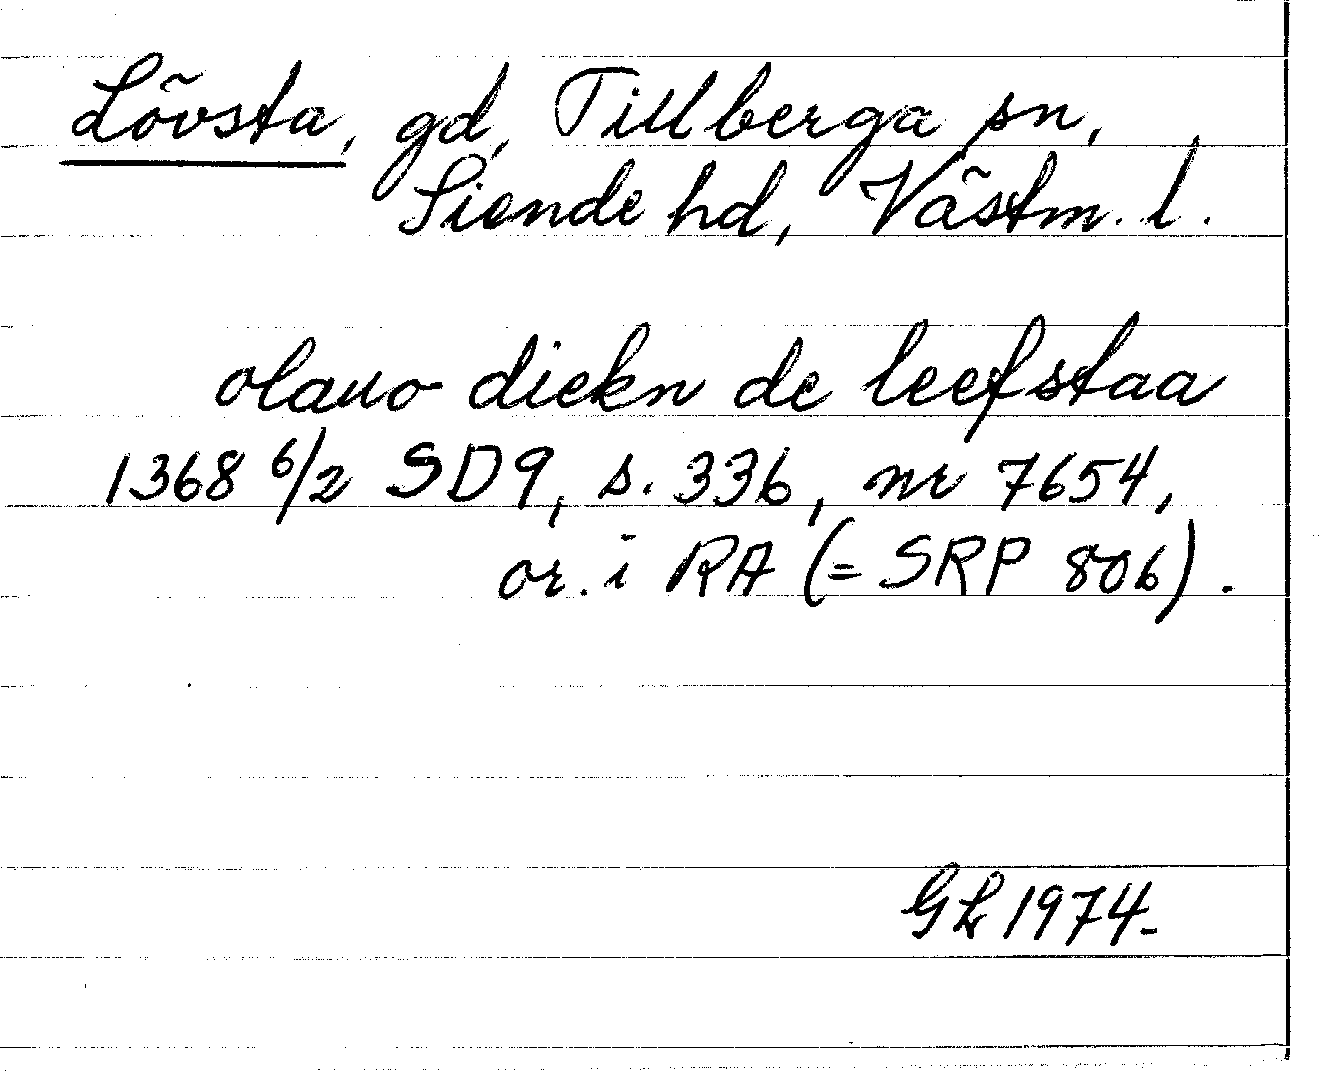 Lövsta, gd, Tillberga sn,
Siende hd, Västm. l.
olauo diekn de leefstaa
1368 6/2 SD9, s. 336, nr 7654,
or. i RA (= SRP 806).
GL 1974